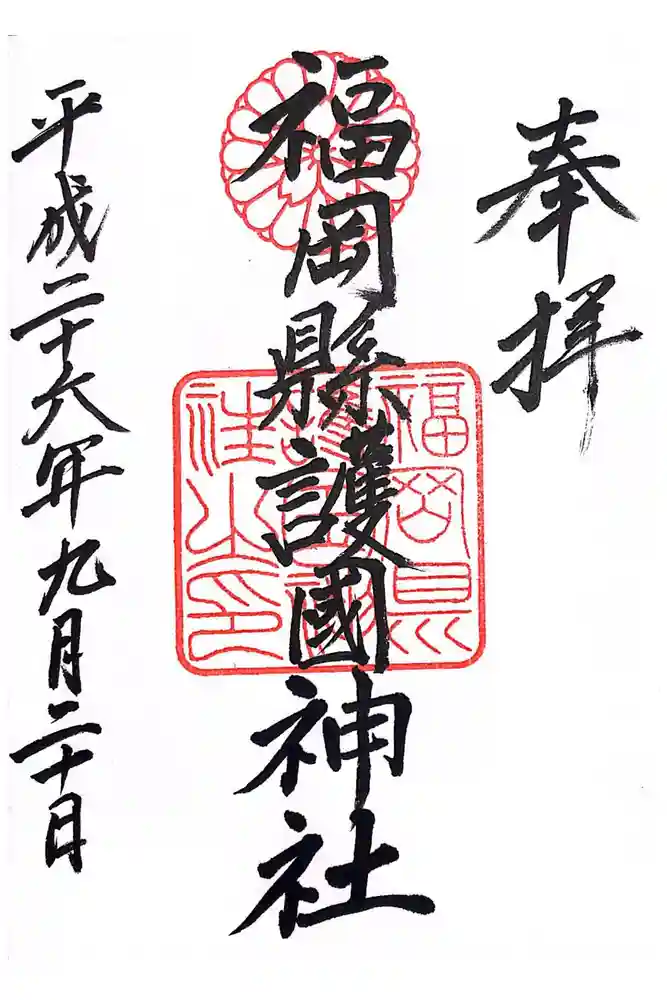 奉拝
福岡縣護國神社
平成二十六年九月二十日
福岡県
社之印